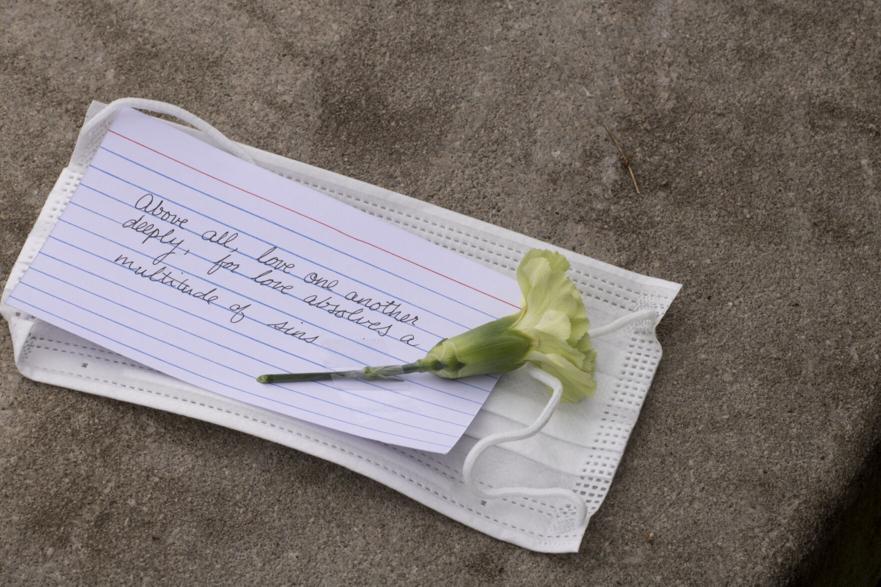 Above all, love one another
deeply, for love absolves a
multitude of sins